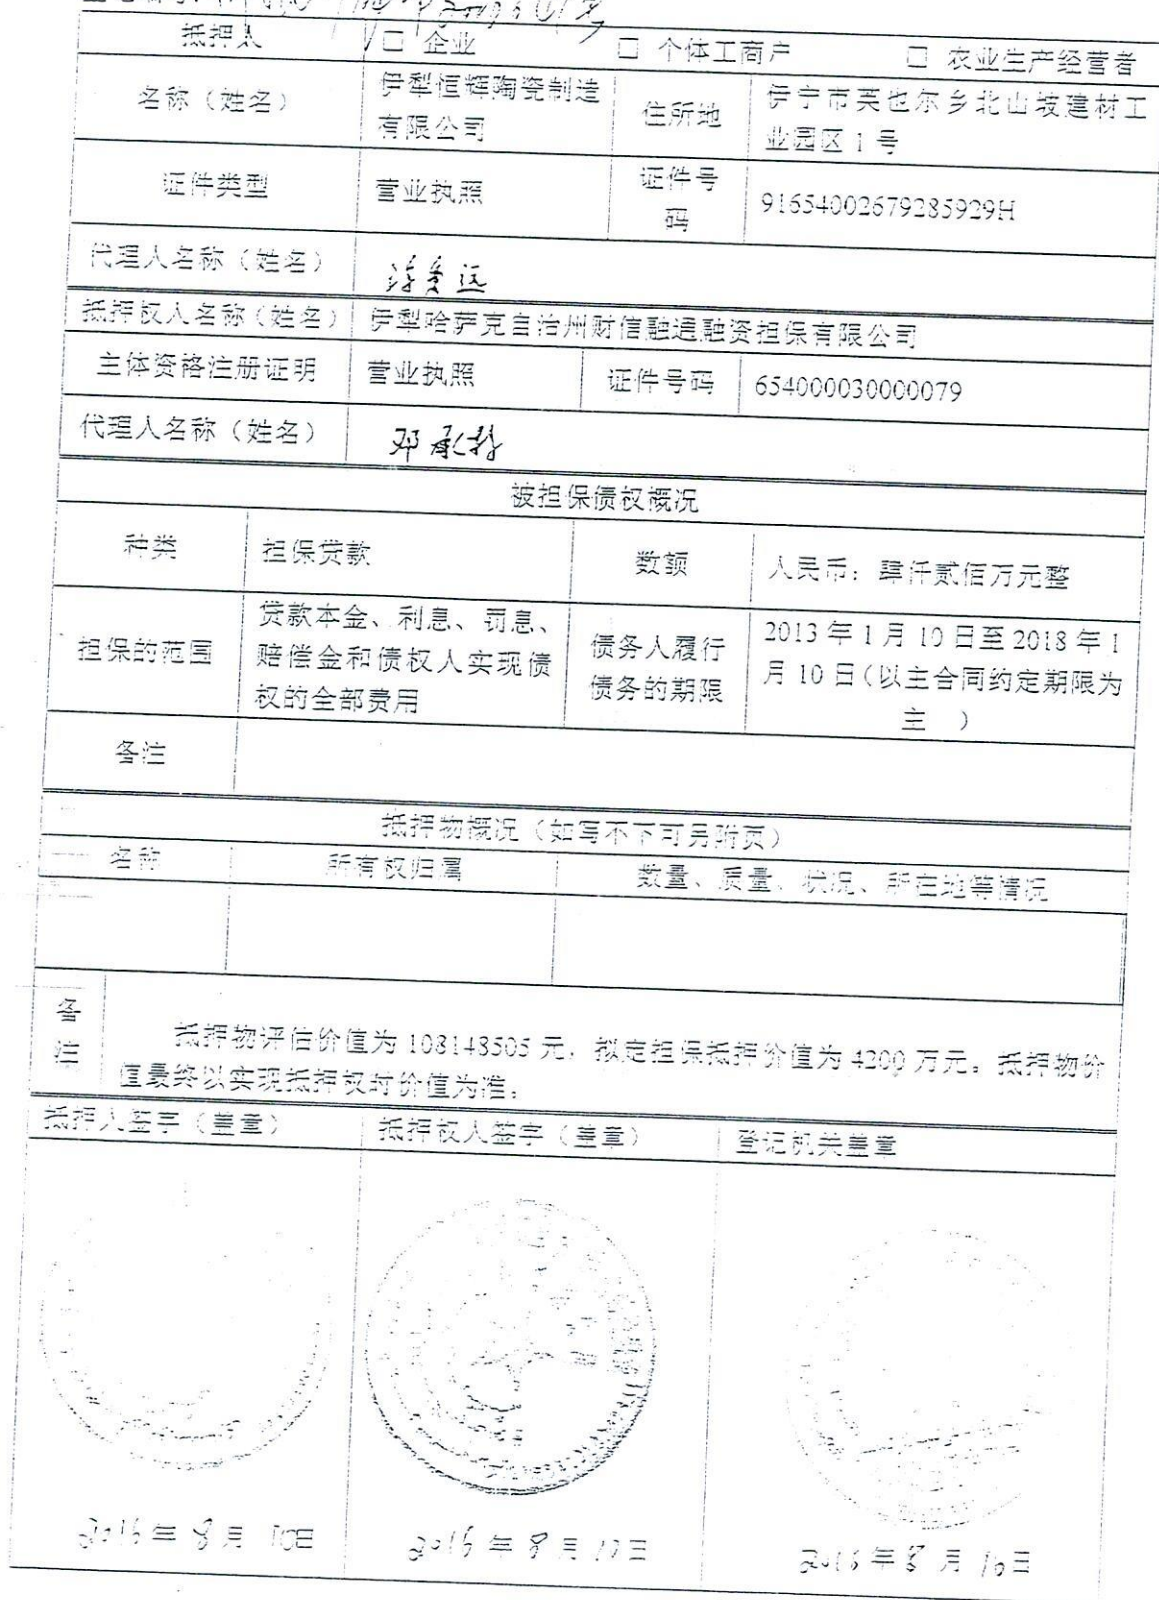 抵押人 □ 企业 □ 个体工商户 □ 农业生产经营者
名称（姓名） 伊犁恒辉陶瓷制造有限公司 住所地 伊宁市英也尔乡北山坡建材工业园区 1 号
证件类型 营业执照 证件号码 91654002679285929H
代理人名称（姓名）
抵押权人名称（姓名） 伊犁哈萨克自治州财信融通融资担保有限公司
主体资格注册证明 营业执照 证件号码 654000030000079
代理人名称（姓名）
被担保债权概况
种类 担保贷款 数额 人民币：肆仟贰佰万元整
担保的范围 贷款本金、利息、罚息、赔偿金和债权人实现债权的全部费用 债务人履行债务的期限 2013 年 1 月 10 日至 2018 年 1 月 10 日（以主合同约定期限为主 ）
备注
抵押物概况（如写不下可另附页）
名称 所有权归属 数量、质量、状况、所在地等情况
备注 抵押物评估价值为 108148505 元，拟定担保抵押价值为 4200 万元，抵押物价
值最终以实现抵押权时价值为准。
抵押人签字（盖章） 抵押权人签字（盖章） 登记机关盖章
年 8 月 年 8 月 日 年 8 月 日